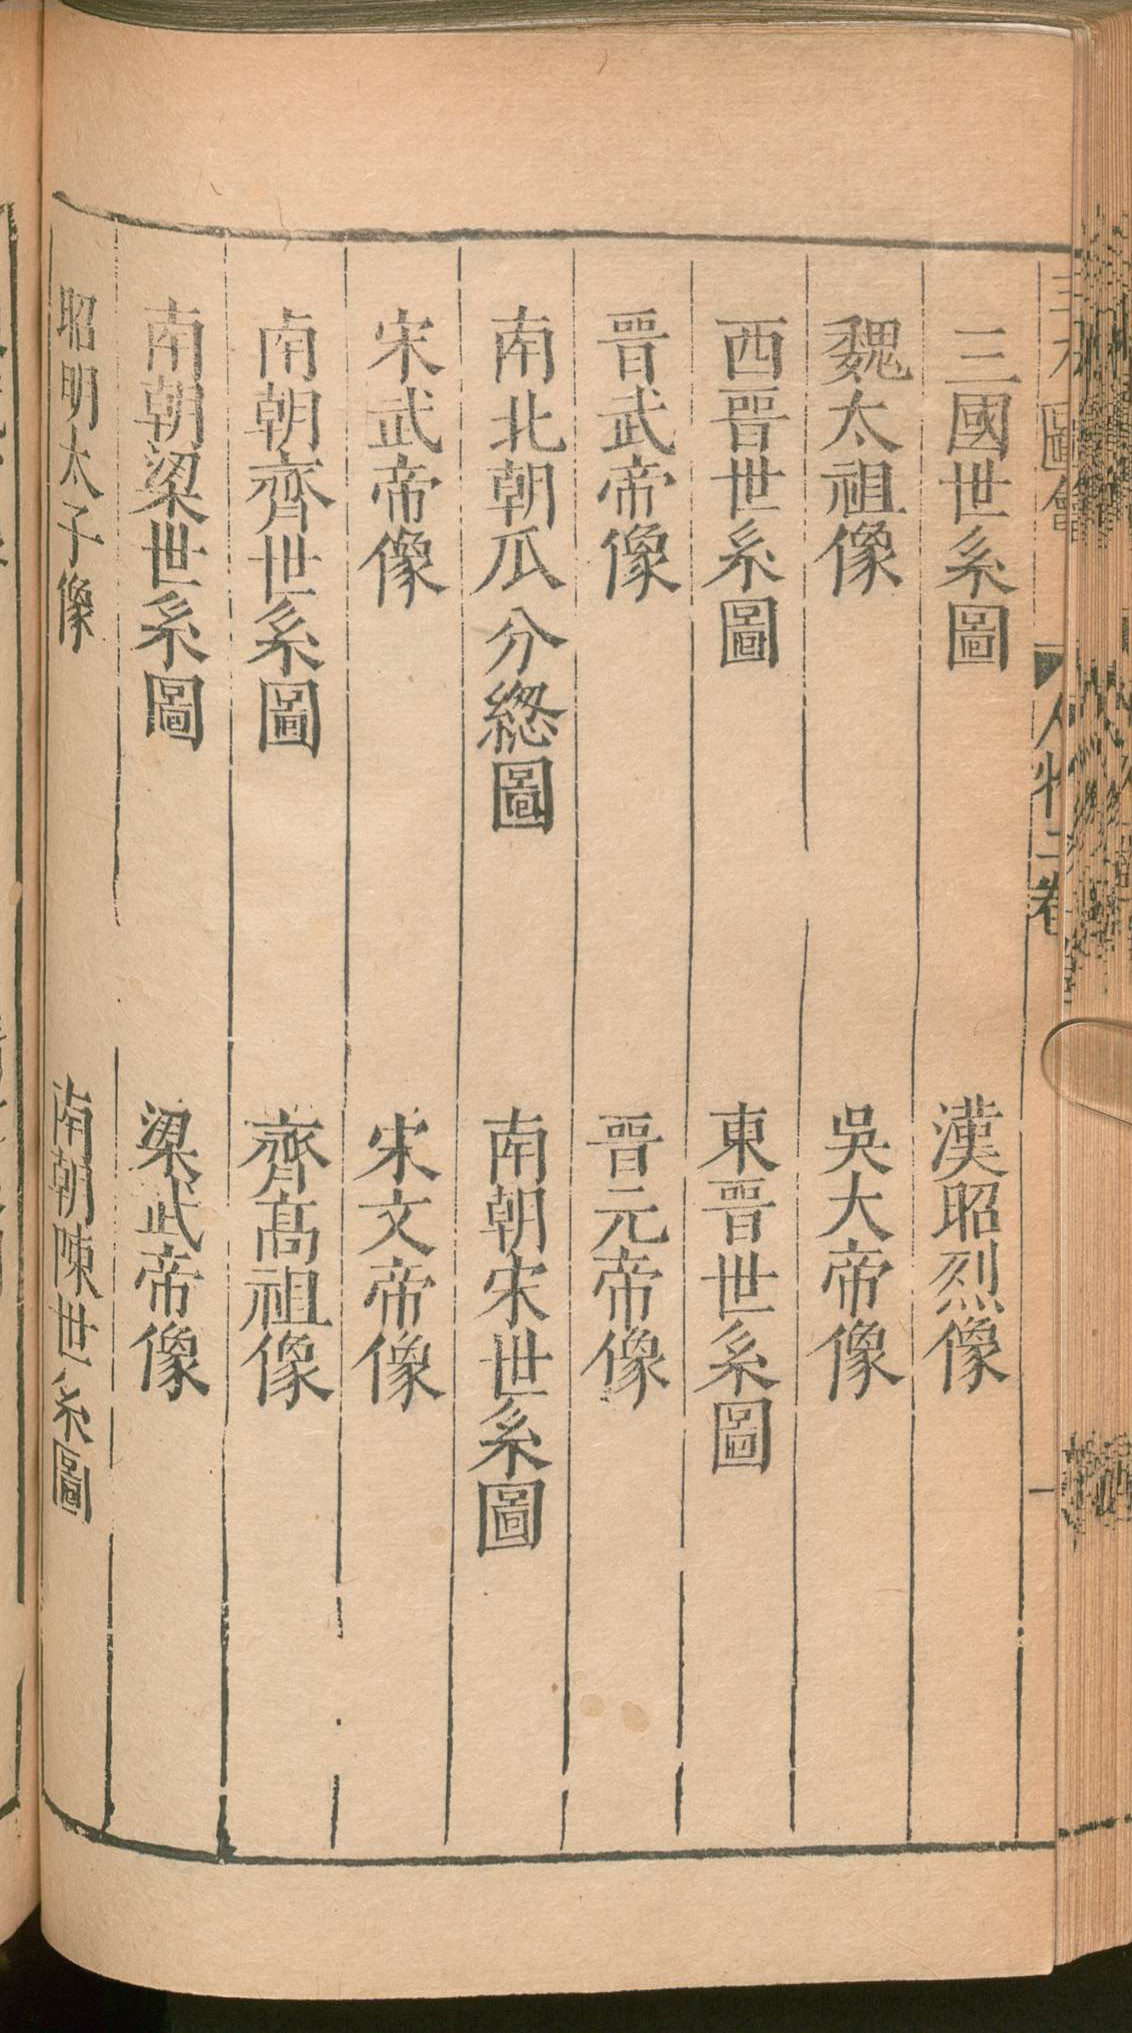 三才圖會 人物二卷 一
三國世系圖 漢昭烈像
魏太祖像 吳大帝像
西晋世系圖 東晋世系圖
晋武帝像 晋元帝像
南北朝瓜分緫圖 南朝宋世系圖
宋武帝像 宋文帝像
南朝齊世系圖 齊髙祖像
南朝梁世系圖 梁武帝像
昭明太子像 南朝陳世系圖